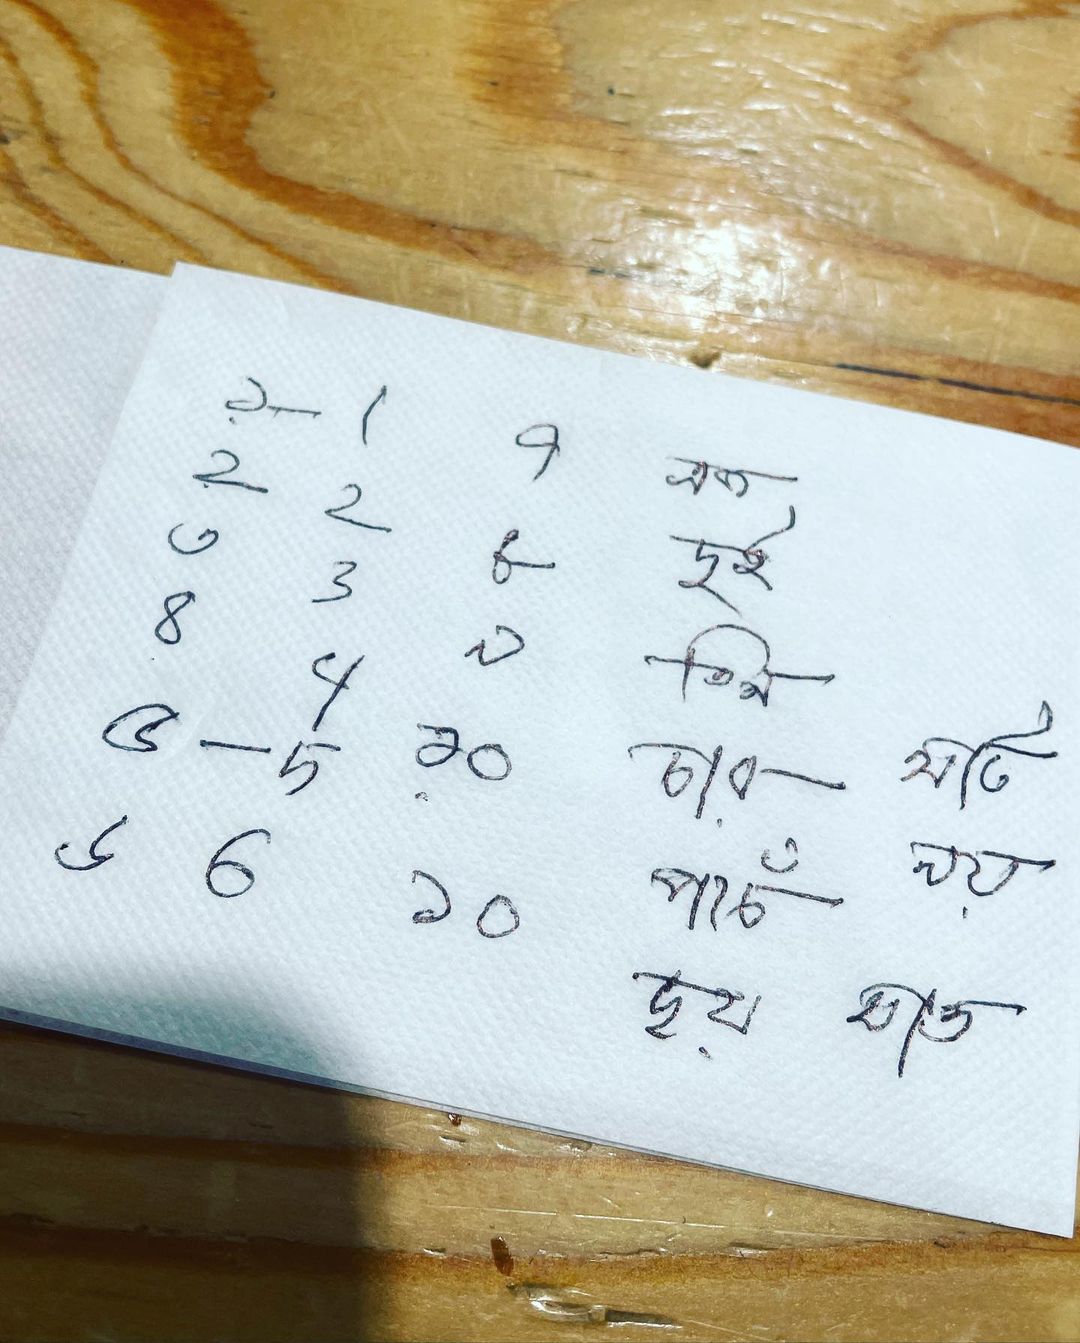 ১ — 1 ৭ এক
২ 2 ৮ দুই
৩ 3 ৯ তিন
৪ 4 ১০ চার আট
৫ — 5 ১০ পাচঁ নয়
৬ 6 ছয় সাত